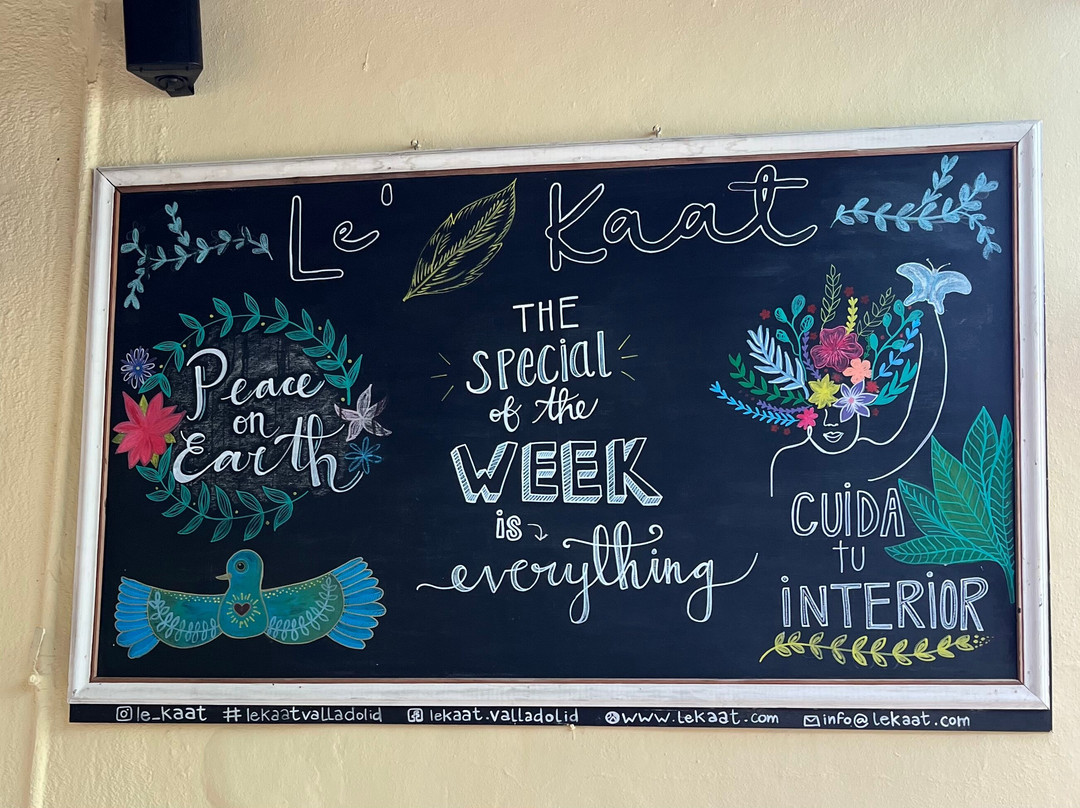 Le' Kaat
Peace
on
Earth
THE
special
of the
WEEK
is
everything
CUiDA
tu
iNTERiOR
le_kaat #lekaatvalladolid lekaat.valladolid www.lekaat.com info@lekaat.com